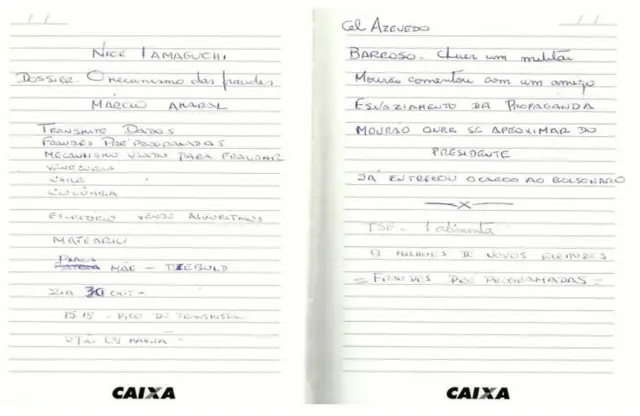 NICE YAMAGUCHI
DOSSIER. O mecanismo das fraudes
MÁRCIO AMARAL
TRANSMITE DADOS
FRAUDES PRÉ PROGRAMADAS
MECANISMO USADO PARA FRAUDAR
VENEZUELA
CHILE
COLÔMBIA
VENDE ALGORITMOS
MÃE -
30
15:15 - PICO DE
CAIXA
Cel AZEVEDO
BARROSO. Quer um militar
Mourão comentou com um amigo
ESVAZIAMENTO DA PROPAGANDA
MOURÃO QUER SE APROXIMAR DO
PRESIDENTE
JÁ ENTREGOU O CARGO AO BOLSONARO
X
TSE - alimenta
9 MILHÕES DE NOVOS ELEITORES
- FRAUDES PRÉ PROGRAMADAS -
CAIXA